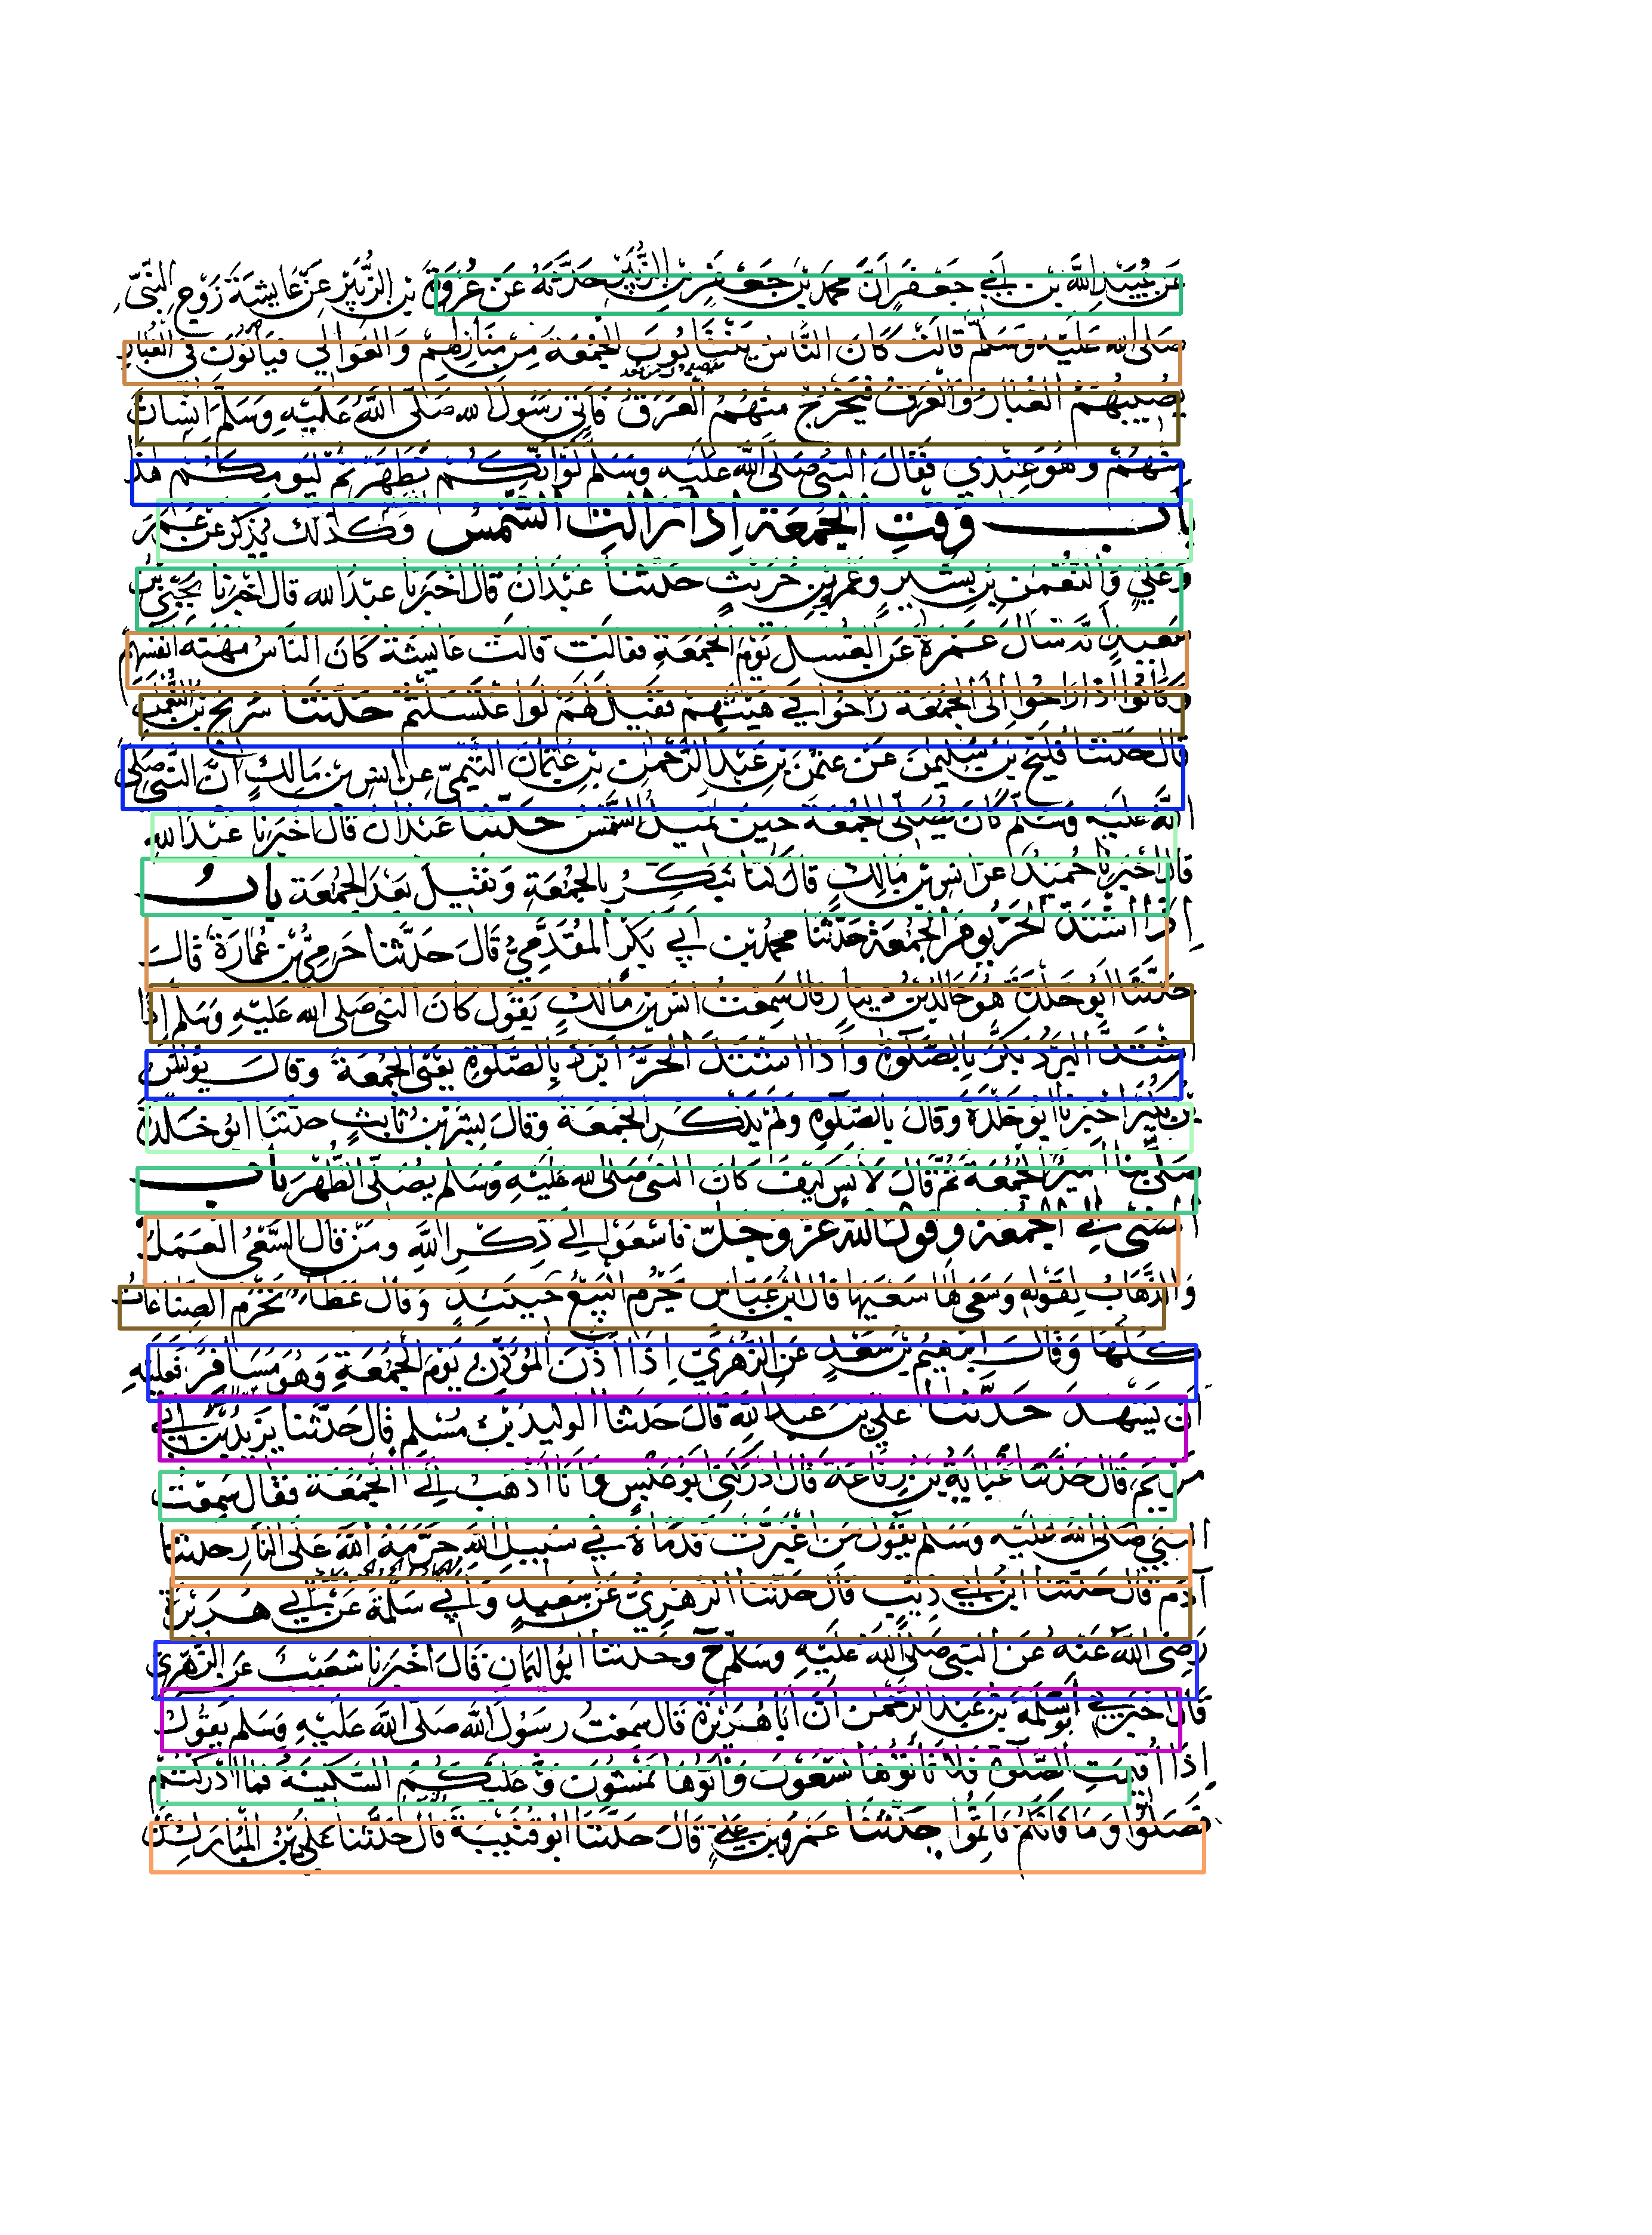 عَن عُبَيْدِ اللَّه بن أبي جَعْفَر أنَّ محمد بن جَعْفَر بن الزُّبَيْر حَدَّثَهُ عَنْ عُرْوَةَ بن الزُّبَيْر عَنْ عَايِشَةَ زَوْجِ النَّبِيِّ
صَلى الله عَلَيْه وَسَلَّم قالَتْ كَانَ النَّاسُ يَنْتَابُونَ الجُمُعَةَ مِنْ مَنَازِلِهِمْ وَالعَوَالي فَيَأتُونَ في الغُبَارِ
يُصِيبُهُمُ الغُبَارُ وَالعَرَقُ فَيَخْرُجُ مِنْهُمُ العَرَقُ فَأتى رَسُولَ الله صَلَّى اللَّهُ عَلَيْهِ وَسَلَّمَ انْسَانٌ
مِنْهُمْ وَهُوَ عِنْدِي فَقَالَ النبيُّ صَلى اللَّه عَلَيْهِ وَسَلم لَوْ أنَّكُمْ تَطَهَّرْتُمْ لِيَوْمِكُمْ هَذَا
بَاب وَقْتِ الجُمُعَة إِذَا زَالَتِ الشَّمْس وَكَذلكَ يُذْكَرُ عَنْ عُمَرَ
وَعَليٍّ وَالنُّعْمٰن بْن بَشِيْرٍ وَعَمْرِو بْن حُرَيْثٍ حَدَّثَنَا عَبْدَانُ قالَ اخْبَرَنَا عبْدُ الله قال اخْبَرنَا يَحْيَى بْنُ
سَعِيدٍ أنَّهُ سَالَ عَمْرَةَ عَن الغُسْلِ يَوْمَ الجُمُعَةِ فقالَتْ قَالَتْ عَايِشَة كَانَ النَّاسُ مَهَنَةَ أنْفُسِهِمْ
وَكَانُوا اذَا رَاحُوا إلَى الجُمُعَة رَاحُوا في هَيْئَتِهِمْ فَقِيلَ لَهُمْ لَوِ اغْتَسَلْتُمْ حَدَّثَنَا سُرَيْج بْن النُّعْمٰن
قَال حَدَّثَنَا فُلَيْح بن سُلَيْمٰن عَنْ عثمٰن بن عَبْد الرَّحْمٰن بْن عُثْمَان التَّيْمِيّ عن انَس بْن مَالِكٍ أنَّ النَّبيَّ صَلى
اللَّه عَلَيْهِ وَسَلم كَانَ يُصَلّي الجُمُعَةَ حِينَ تَمِيلُ الشَّمْسُ حَدَّثَنَا عَبْدَانُ قَالَ اخْبَرَنَا عَبْدُ الله
قَالَ اخْبَرَنَا حُمَيْدٌ عَنْ انَسِ بْن مَالِكٍ قَالَ كُنَّا نُبَكِّرُ بِالجُمُعَةِ وَنَقِيلُ بَعْدَ الجُمُعَة بابٌ
إذا اشْتَدَّ الحَرُّ يَوْمَ الجُمُعَة حَدَّثَنَا محمدُ بن أبي بَكْرٍ المُقَدَّمِيُّ قَالَ حَدَّثَنَا حَرَمِيُّ بْن عُمَارَةَ قَالَ
حَدَّثَنَا أبُو خَلْدَةَ هُوَ خَالِدُ بْنُ دِينَارٍ قَالَ سَمِعْتُ انَسَ بْن مَالِكٍ يَقُولُ كانَ النَّبيُّ صَلى الله عَلَيْهِ وَسَلم إذَا
اشْتَدَّ البَرْدُ بَكَّرَ بِالصَّلوةِ وَاذَا اشْتَدَّ الحَرُّ أبْرَدَ بِالصَّلوةِ يَعْنِي الجُمُعَةَ وَقَالَ يُونُسُ
بْنُ بُكَيْرٍ اخْبَرَنَا أبُو خَلْدَةَ وَقَالَ بِالصَّلوةِ وَلَمْ يَذْكُرِ الجُمُعَةَ وَقَالَ بِشْرُ بْنُ ثَابِتٍ حَدَّثَنَا أبُو خَلْدَةَ
صَلَّى بِنَا أمِيرٌ الجُمُعَةَ ثُمَّ قَالَ لأنَسٍ كَيْفَ كَانَ النَّبيُّ صَلى الله عَلَيْهِ وَسَلم يُصَلِّي الظُّهْرَ بَاب
المَشْيِ إلَى الجُمُعَة وَقَوْلِ اللَّهِ عَزَّ وَجَلَّ فَاسْعَوْا إلَى ذِكْرِ اللَّهِ وَمَنْ قَالَ السَّعْيُ العَمَلُ
وَالذَّهَابُ لِقَوْلِهِ وَسَعَى لَهَا سَعْيَهَا قَالَ ابْنُ عَبَّاسٍ يَحْرُمُ البَيْعُ حِينَئِذٍ وَقَالَ عَطَاءٌ تَحْرُمُ الصِّنَاعَاتُ
كُلُّهَا وَقَالَ إبْرٰهِيمُ بْنُ سَعْدٍ عَنِ الزُّهْرِيِّ إذَا أذَّنَ المُؤَذِّنُ يَوْمَ الجُمُعَةِ وَهُوَ مُسَافِرٌ فَعَلَيْهِ
أنْ يَشْهَدَ حَدَّثَنَا عَلِيُّ بْن عَبْدِ اللَّهِ قَالَ حَدَّثَنَا الوَلِيدُ بْنُ مُسْلِمٍ قَالَ حَدَّثَنَا يَزِيْدُ بْنُ أبي
مَرْيَمَ قَالَ حَدَّثَنَا عَبَايَةُ بْنُ رِفَاعَةَ قَالَ ادْرَكَنِي أبُو عَبْسٍ وَأنَا أذْهَبُ إلَى الجُمُعَةِ فَقَالَ سَمِعْتُ
النَّبيَّ صَلى الله عَلَيْهِ وَسَلم يَقُولُ مَنِ اغْبَرَّتْ قَدَمَاهُ في سَبِيلِ اللهِ حَرَّمَهُ اللَّهُ عَلَى النَّارِ حَدَّثَنَا
آدَمُ قَالَ حَدَّثَنَا ابْنُ أبي ذِيْبٍ قَالَ حَدَّثَنَا الزُّهْرِيُّ عَنْ سَعِيدٍ وَأبِي سَلَمَةَ عَنْ أبي هُرَيْرَةَ
رَضِيَ اللَّهُ عَنْهُ عَنِ النَّبِيِّ صَلى اللَّهُ عَلَيْهِ وَسَلم ح وَحَدَّثَنَا أبُو اليَمَانِ قَالَ اخْبَرَنَا شُعَيْبٌ عَنِ الزُّهْرِيِّ
قَالَ اخْبَرَنِي أبُو سَلَمَةَ بْنُ عَبْدِ الرَّحْمٰنِ أنَّ أبَا هُرَيْرَةَ قَالَ سَمِعْتُ رَسُولَ اللَّهِ صَلَّى اللَّهُ عَلَيْهِ وَسَلم يَقُولُ
إذَا أُقِيمَتِ الصَّلوةُ فَلَا تَأْتُوْهَا تَسْعَوْنَ وَأْتُوهَا تَمْشُونَ وَعَلَيْكُمُ السَّكِينَةُ فَمَا ادْرَكْتُمْ
فَصَلُّوْا وَمَا فَاتَكُمْ فَاتِمُّوْا حَدَّثَنَا عَمْرُو بْن عَلِيٍّ قَالَ حَدَّثَنَا أبُو قُتَيْبَةَ قَالَ حَدَّثَنَا عَلِيُّ بْنُ المُبَارَكِ عَنْ